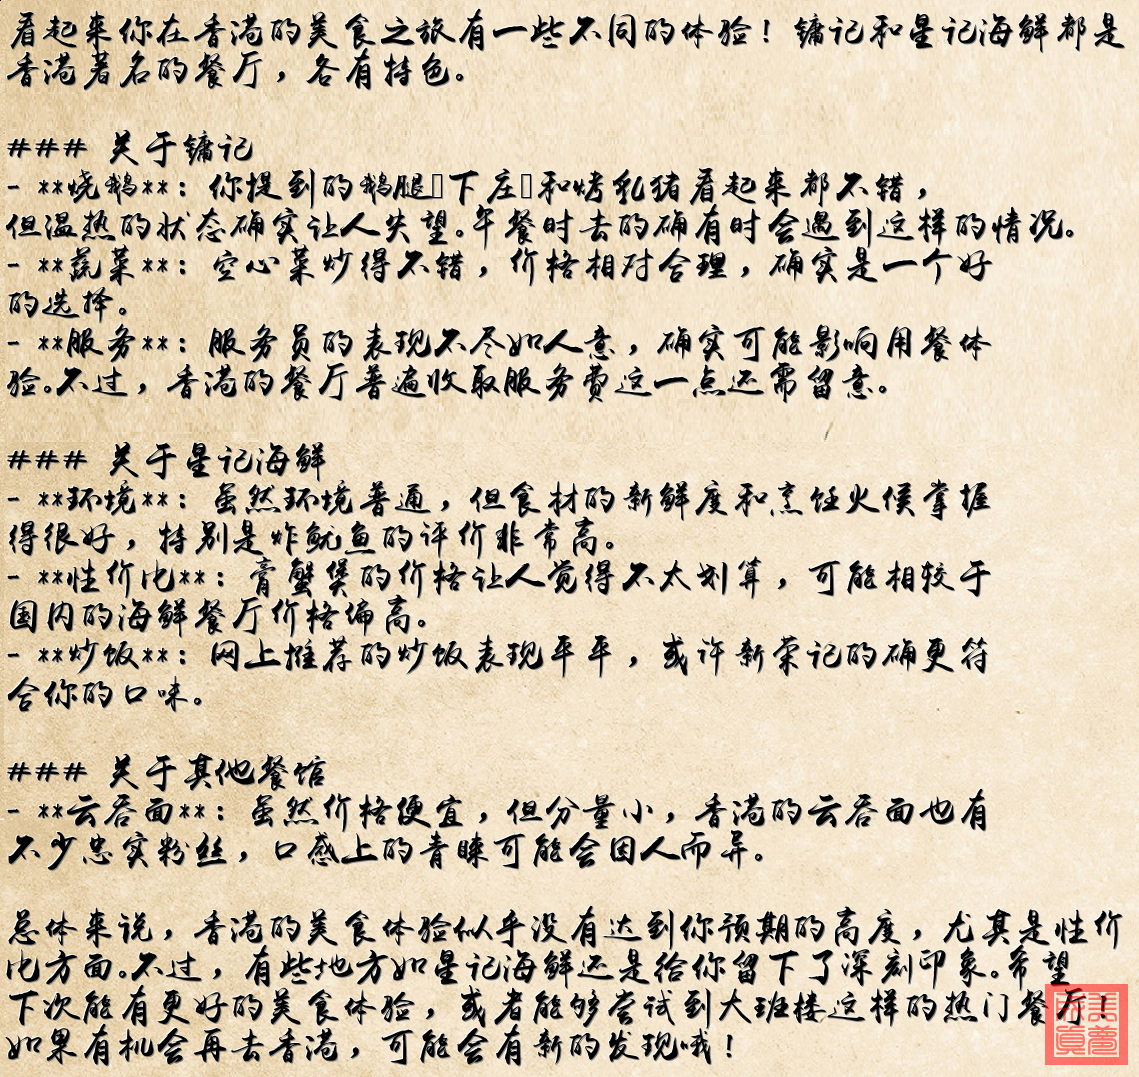 看起来你在香港的美食之旅有一些不同的体验！镛记和星记海鲜都是
香港著名的餐厅，各有特色。
### 关于镛记
- **烧鹅**：你提到的鹅腿（下庄）和烤乳猪看起来都不错，
但温热的状态确实让人失望。午餐时去的确有时会遇到这样的情况。
- **蔬菜**：空心菜炒得不错，价格相对合理，确实是一个好
的选择。
- **服务**：服务员的表现不尽如人意，确实可能影响用餐体
验。不过，香港的餐厅普遍收取服务费这一点还需留意。
### 关于星记海鲜
- **环境**：虽然环境普通，但食材的新鲜度和烹饪火候掌握
得很好，特别是炸鱿鱼的评价非常高。
- **性价比**：膏蟹煲的价格让人觉得不太划算，可能相较于
国内的海鲜餐厅价格偏高。
- **炒饭**：网上推荐的炒饭表现平平，或许新荣记的确更符
合你的口味。
### 关于其他餐馆
- **云吞面**：虽然价格便宜，但分量小，香港的云吞面也有
不少忠实粉丝，口感上的青睐可能会因人而异。
总体来说，香港的美食体验似乎没有达到你预期的高度，尤其是性价
比方面。不过，有些地方如星记海鲜还是给你留下了深刻印象。希望
下次能有更好的美食体验，或者能够尝试到大班楼这样的热门餐厅！
如果有机会再去香港，可能会有新的发现哦！